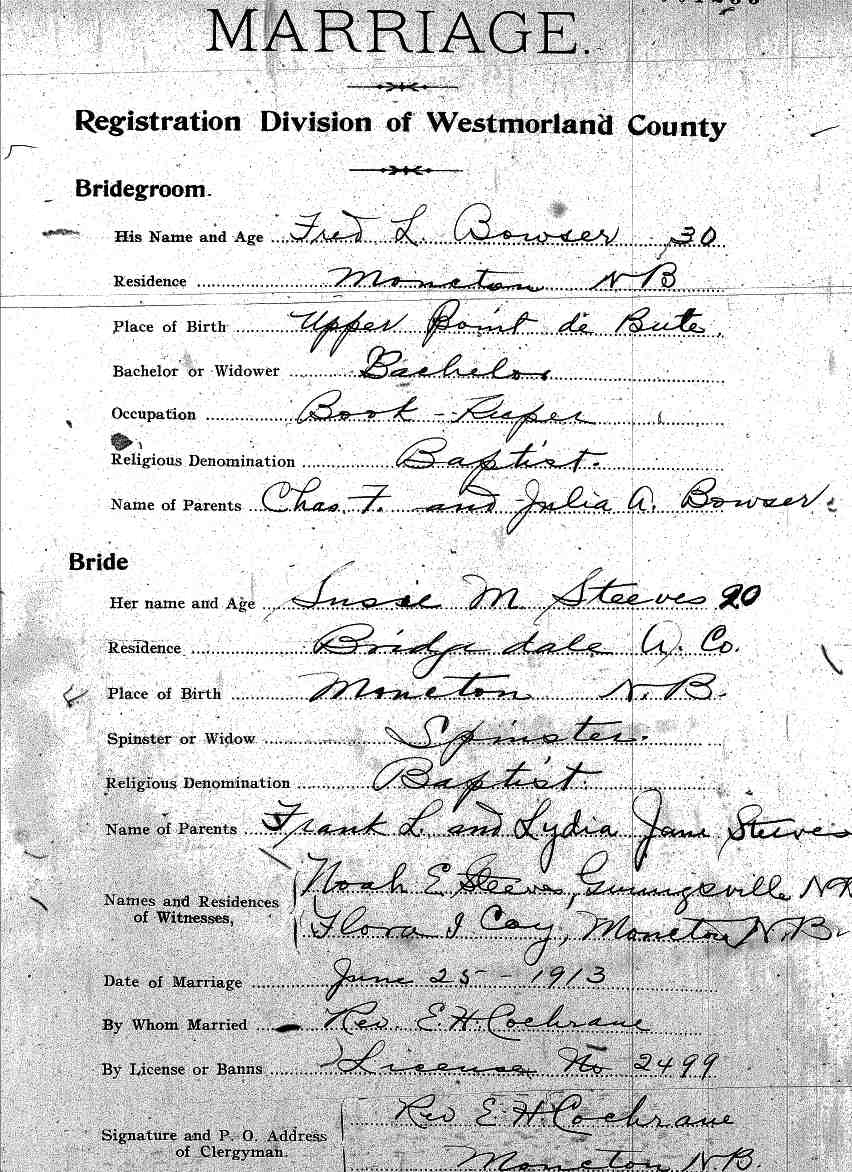 MARRIAGE.
Registration Division of Westmorland County
Bridegroom.
His Name and Age Fred L. Bowser 30
Residence Moncton N B
Place of Birth Upper Point de Bute.
Bachelor or Widower Bachelor
Occupation Book-Keeper
Religious Denomination Baptist.
Name of Parents Chas. F. and Julia A. Bowser.
Bride
Her name and Age Susie M Steeves 20
Residence Bridgedale A. Co.
Place of Birth Moncton N.B.
Spinster or Widow Spinster.
Religious Denomination Baptist.
Name of Parents Frank L. and Lydia Jane Steeves
Names and Residences of Witnesses, Noah E Steeves, NB
Flora I Coy, Moncton N.B.
Date of Marriage June 25 - 1913
By Whom Married Rev. E.H. Cochrane
By License or Banns License No 2499
Signature and P. O. Address of Clergyman. Rev E.H. Cochrane
Moncton N.B.